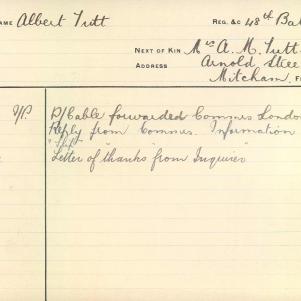 NAME Albert Tutt REG. &c 48th Bat
NEXT OF KIN Mrs A. M. Tutt
ADDRESS Arnold Stree
Mitcham,
D/Cable forwarded Commrs London
Reply from Commrs. Information
Letter of "thanks" from Inquirer